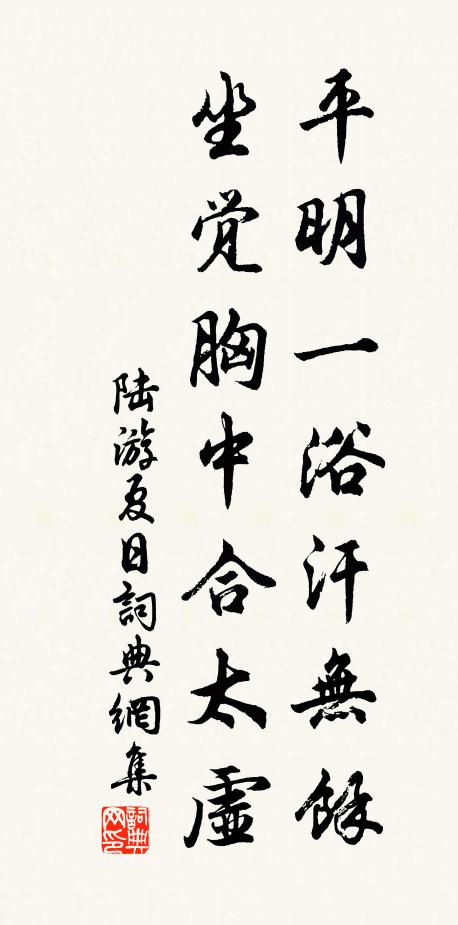 平明一浴汗無餘
坐覚胸中合太虛
陆游夏日詞典網集
詞典网印